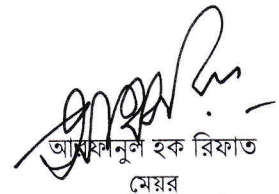 আরফানুল হক রিফাত
মেয়র